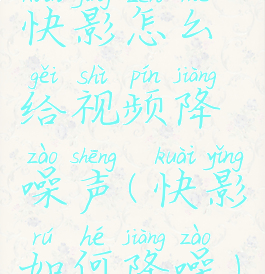 快影怎么
gěi shì pín jiàng
给视频降
zào shēng kuài yǐng
噪声(快影
rú hé jiàng zào
如何降噪)